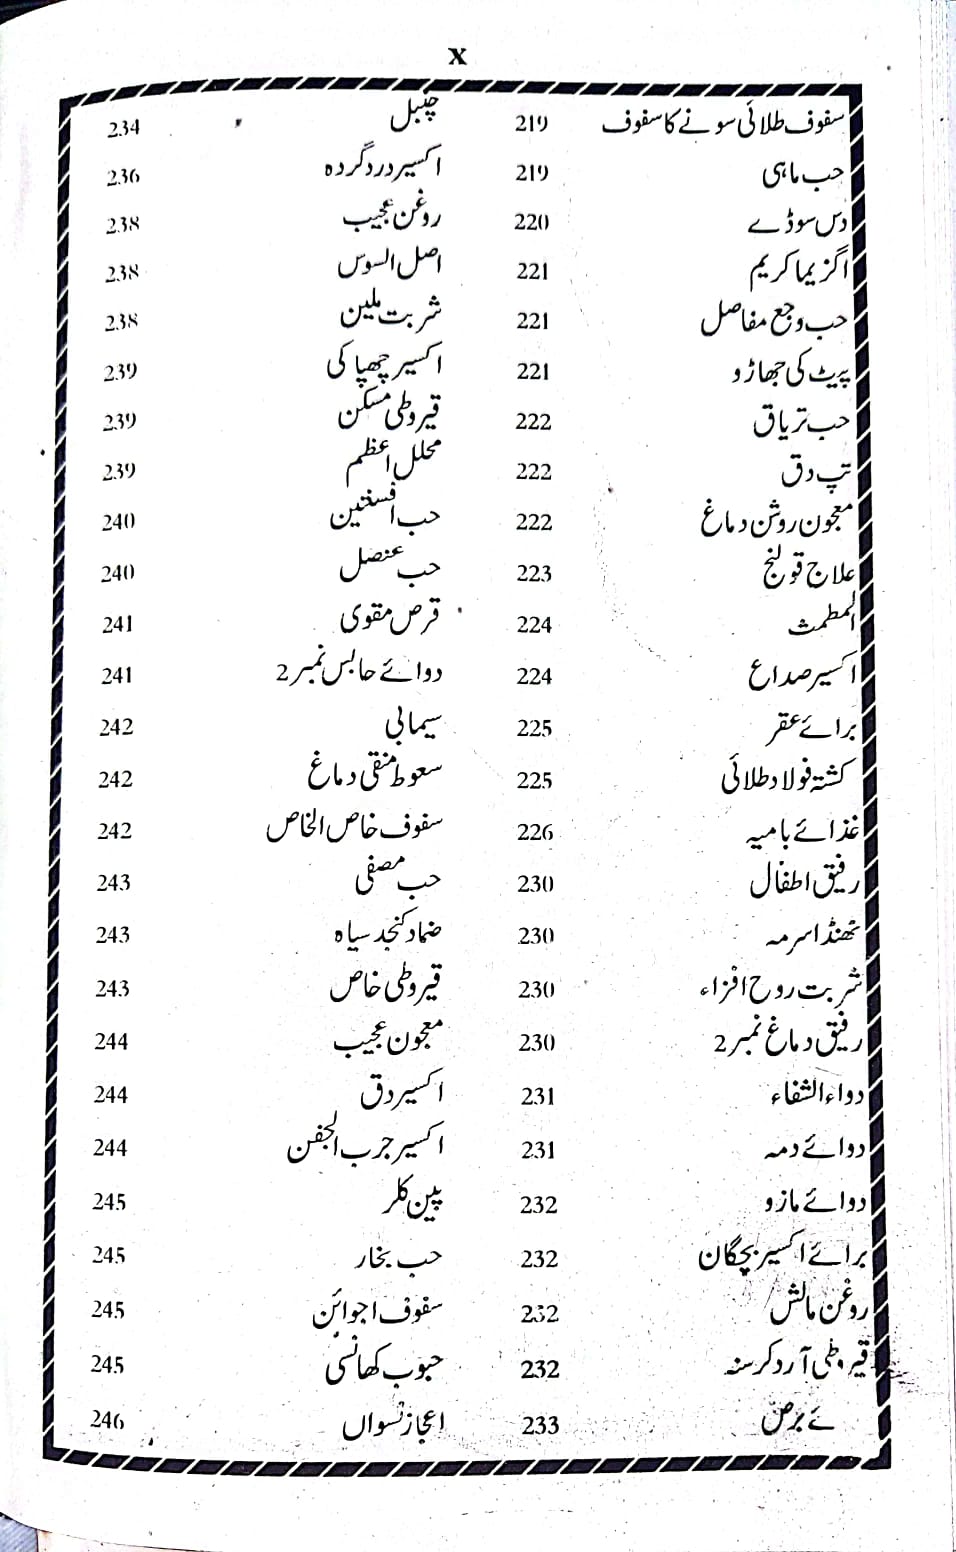 x
سفوف طلائی سونے کا سفوف 219
حب ماہی 219
دس سوڈے 220
اگزیما کریم 221
حب وجع مفاصل 221
پیٹ کی جھاڑو 221
حب تریاق 222
تپ دق 222
معجون روشن دماغ 222
علاج قولنج 223
المطمث 224
اکسیر صداع 224
برائے عقر 225
کشتہ فولاد طلائی 225
غذائے بامیہ 226
رفیق اطفال 230
ٹھنڈا سرمہ 230
شربت روح افزاء 230
رفیق دماغ نمبر 2 230
دواء الشفاء 231
دوائے دمہ 231
دوائے مازو 232
برائے اکسیر بچگان 232
روغن مالش 232
قیروطی آرد کرسنہ 232
ئے برص 233
چنبل 234
اکسیر درد گردہ 236
روغن عجیب 238
اصل السوس 238
شربت ملین 238
اکسیر چھپاکی 239
قیروطی مسکن 239
محلل اعظم 239
حب افسنتین 240
حب عنصل 240
قرص مقوی 241
دوائے حابس نمبر 2 241
سیمابی 242
سعوط منقی دماغ 242
سفوف خاص الخاص 242
حب مصفی 243
ضماد کنجد سیاہ 243
قیروطی خاص 243
معجون عجیب 244
اکسیر دق 244
اکسیر جرب الجفن 244
پین کلر 245
حب بخار 245
سفوف اجوائن 245
حبوب کھانسی 245
اعجاز نسواں 246